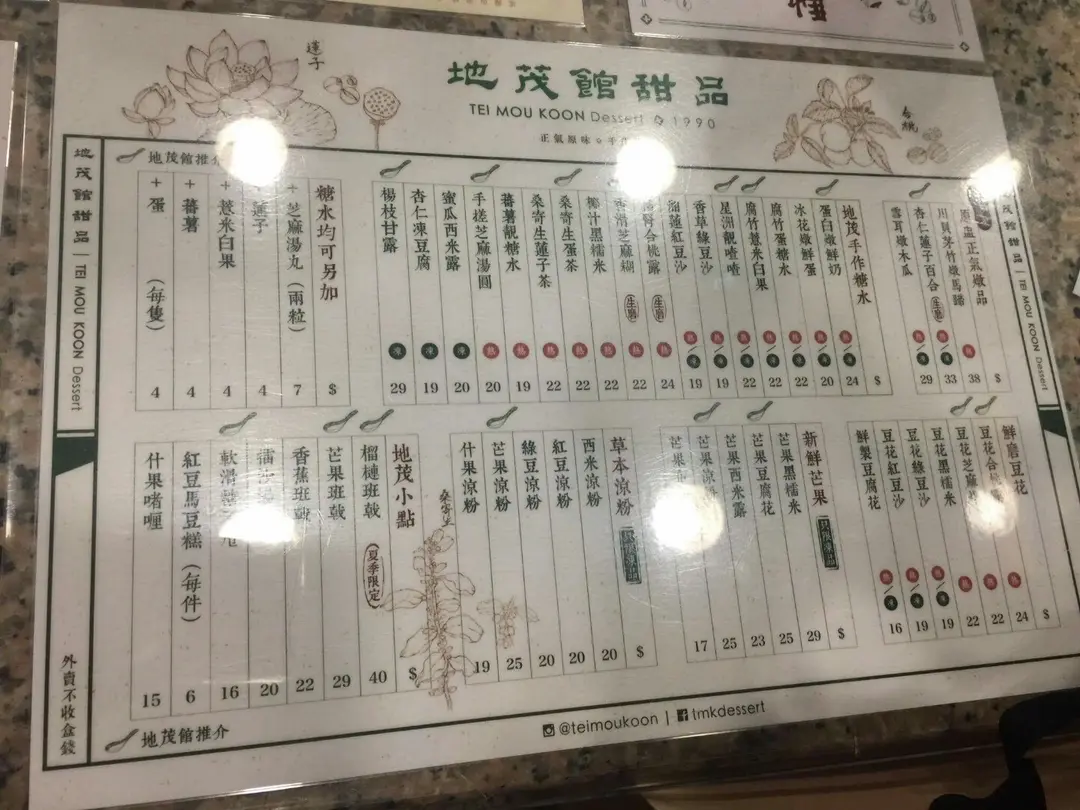 地茂館甜品
TEI MOU KOON Dessert 1990
正氣原味
蓮子
合桃
地茂館甜品 | TEI MOU KOON Dessert
地茂館推介
原盅正氣燉品 $
川貝茅竹燉馬蹄 熱 38
杏仁蓮子百合 生磨 熱/凍 33
雪耳燉木瓜 熱/凍 29
地茂手作糖水 $
蛋白燉鮮奶 熱/凍 24
冰花燉鮮蛋 熱/凍 20
腐竹蛋糖水 熱/凍 22
腐竹薏米白果 熱/凍 22
星洲靚喳喳 熱/凍 22
香草綠豆沙 熱/凍 19
湘蓮紅豆沙 熱/凍 19
合桃露 生磨 熱 24
香滑芝麻糊 生磨 熱 22
椰汁黑糯米 熱 22
桑寄生蛋茶 熱 22
桑寄生蓮子茶 熱 22
蕃薯靚糖水 熱 19
手搓芝麻湯圓 熱 20
蜜瓜西米露 凍 20
杏仁凍豆腐 凍 19
楊枝甘露 凍 29
糖水均可另加 $
+芝麻湯丸(兩粒) 7
+蓮子 4
+薏米白果 4
+蕃薯 4
+蛋 (每隻) 4
鮮磨豆花 $
豆花合 熱 24
豆花芝麻 熱 22
豆花黑糯米 熱 22
豆花綠豆沙 熱/凍 19
豆花紅豆沙 熱/凍 19
鮮製豆腐花 熱/凍 16
新鮮芒果 $
芒果黑糯米 29
芒果豆腐花 25
芒果西米露 23
芒果 25
芒果 17
草本涼粉 $
西米涼粉 20
紅豆涼粉 20
綠豆涼粉 20
芒果涼粉 25
什果涼粉 19
桑寄生
地茂小點 $
榴槤班戟 (夏季限定) 40
芒果班戟 29
香蕉班戟 22
20
軟滑 甩 16
紅豆馬豆糕(每件) 6
什果啫喱 15
地茂館甜品 | TEI MOU KOON Dessert
外賣不收盒錢
地茂館推介
@teimoukoon | tmkdessert